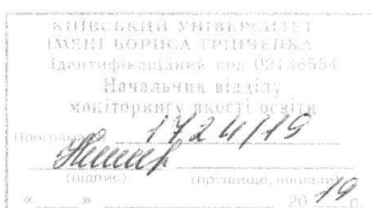 КИЇВСЬКИЙ УНІВЕРСИТЕТ
ІМЕНІ БОРИСА ГРІНЧЕНКА
Ідентифікаційний код 02136554
Начальник відділу
моніторингу якості освіти
1724/19
(підпис) (прізвище, ініціали)
« » 20 19 р.